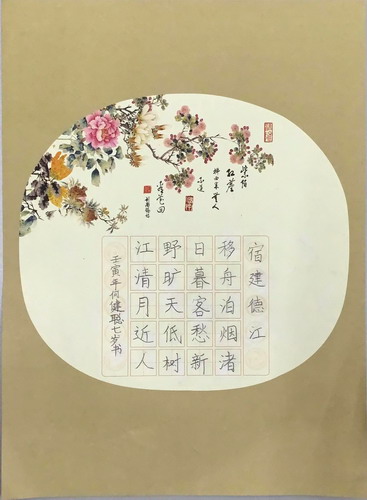 宿建德江
移舟泊烟渚
日暮客愁新
野旷天低树
江清月近人
壬寅年何健聪七岁书